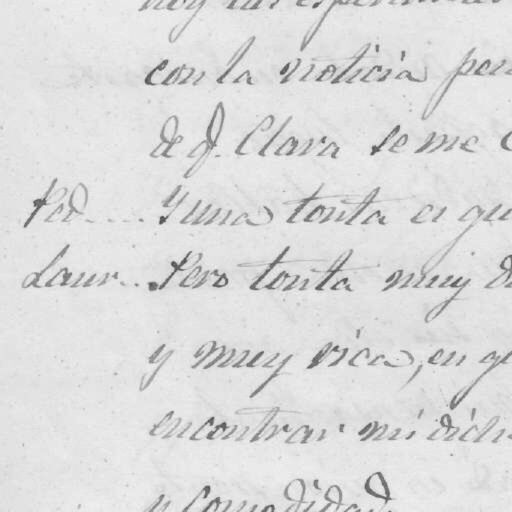 con la noticia
de J. Clara se me
Ped.... Y una tonta
Laur... Pero tonta muy
y muy rica, en
encontrar mi dich
y comodidad